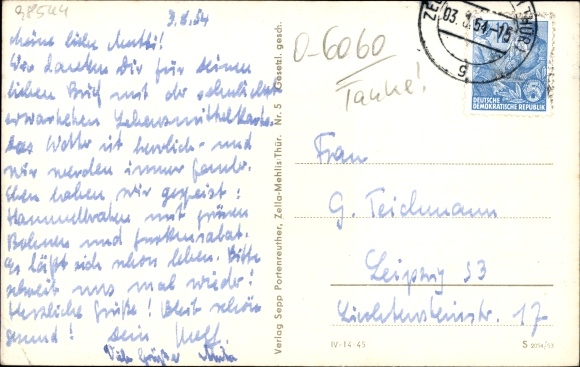 28544
3.8.54
Meine liebe Mutti!
Wir danken Dir für deinen
lieben Brief mit der sehnlichst
erwarteten Lebensmittelkarte.
Das Wetter ist herrlich - und
wir werden immer
Eben haben wir gespeist:
Hammelbraten mit grünen
Bohnen und Gurkensalat.
Es läßt sich schon leben. Bitte
schreib uns mal wieder!
Herzliche Grüße! Bleib schön
gesund! Dein
Viele Grüße
Verlag Sepp Portenreuther, Zella-Mehlis Thür. Nr. 5 Gesetzl. gesch.
O-6060
Tanke!
ZE THÜR
03.8.54-15
g
DEUTSCHE
DEMOKRATISCHE REPUBLIK
Frau
G. Teichmann
Leipzig S3
Lichtensteinstr. 17
IV-14-45
S 2054/53